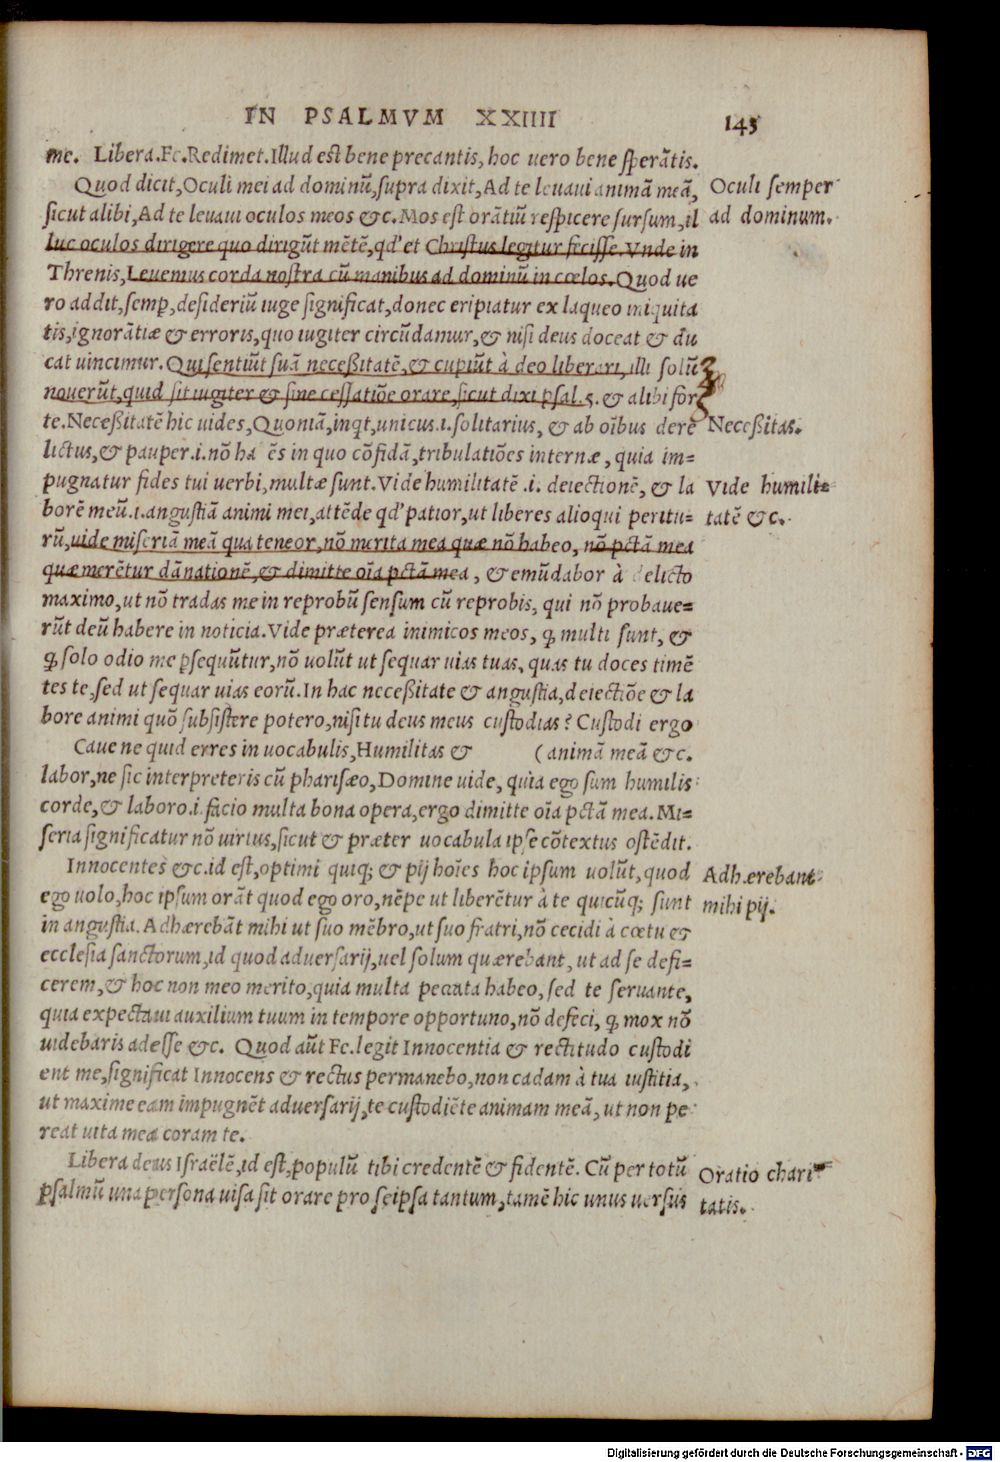 IN PSALMVM XXIIII 143
me. Libera. Fc. Redimet. Illud est bene precantis, hoc uero bene sperãtis.
Quod dicit, Oculi mei ad dominũ, supra dixit, Ad te leuaui animã meã,
Oculi semper
sicut alibi, Ad te leuaui oculos meos &c. Mos est orãtiũ respicere sursum, il
ad dominum.
luc oculos dirigere quo dirigũt mẽtẽ, qd' et Christus legitur fecisse. Vnde in
Threnis, Leuemus corda nostra cũ manibus ad dominũ in cœlos. Quod ue
ro addit, semp, desideriũ iuge significat, donec eripiatur ex laqueo iniquita
tis, ignorãtiæ & erroris, quo iugiter circũdamur, & nisi deus doceat & du
cat uincimur. Qui sentiũt suã necessitatẽ, & cupiũt à deo liberari, illi solũ
nouerũt, quid sit iugiter & sine cessatiõe orare, sicut dixi psal. 5. & alibi for
te. Necessitatẽ hic uides, Quoniã, inqt, unicus .i. solitarius, & ab oĩbus dere
Necessitas.
lictus, & pauper .i. nõ ha ẽs in quo cõfidã, tribulatiões internæ, quia im=
pugnatur fides tui uerbi, multæ sunt. Vide humilitatẽ .i. deiectionẽ, & la
Vide humili=
borẽ meũ .i. angustiã animi mei, attẽde qd' patior, ut liberes alioqui peritu=
tatẽ &c.
rũ, uide miseriã meã qua teneor, nõ merita mea quæ nõ habeo, nõ pctã mea
quæ merẽtur dãnationẽ, & dimitte oĩa pctã mea, & emũdabor à delicto
maximo, ut nõ tradas me in reprobũ sensum cũ reprobis, qui nõ probaue=
rũt deũ habere in noticia. Vide præterea inimicos meos, q multi sunt, &
q solo odio me psequũtur, nõ uolũt ut sequar uias tuas, quas tu doces timẽ
tes te, sed ut sequar uias eorũ. In hac necessitate & angustia, deiectiõe & la
bore animi quõ subsistere potero, nisi tu deus meus custodias? Custodi ergo
Caue ne quid erres in uocabulis, Humilitas & (animã meã &c.
labor, ne sic interpreteris cũ pharisæo, Domine uide, quia ego sum humilis
corde, & laboro .i. facio multa bona opera, ergo dimitte oĩa pctã mea. Mi=
seria significatur nõ uirtus, sicut & præter uocabula ipse cõtextus ostẽdit.
Innocentes &c. id est, optimi quiq; & pij hoĩes hoc ipsum uolũt, quod
Adhærebant
ego uolo, hoc ipsum orãt quod ego oro, nẽpe ut liberẽtur à te quicũq; sunt
mihi pij.
in angustia. Adhærebãt mihi ut suo mẽbro, ut suo fratri, nõ cecidi à cœtu &
ecclesia sanctorum, id quod aduersarij, uel solum quærebant, ut ad se defi=
cerem, & hoc non meo merito, quia multa peccata habeo, sed te seruante,
quia expectaui auxilium tuum in tempore opportuno, nõ defeci, q mox nõ
uidebaris adesse &c. Quod aũt Fc. legit Innocentia & rectitudo custodi
ent me, significat Innocens & rectus permanebo, non cadam à tua iustitia,
ut maxime eam impugnẽt aduersarij, te custodiẽte animam meã, ut non pe
reat uita mea coram te.
Libera deus Israëlẽ, id est, populũ tibi credentẽ & fidentẽ. Cũ per totũ
Oratio chari=
psalmũ una persona uisa sit orare pro seipsa tantum, tamẽ hic unus uersus
tatis.
Digitalisierung gefördert durch die Deutsche Forschungsgemeinschaft - DFG